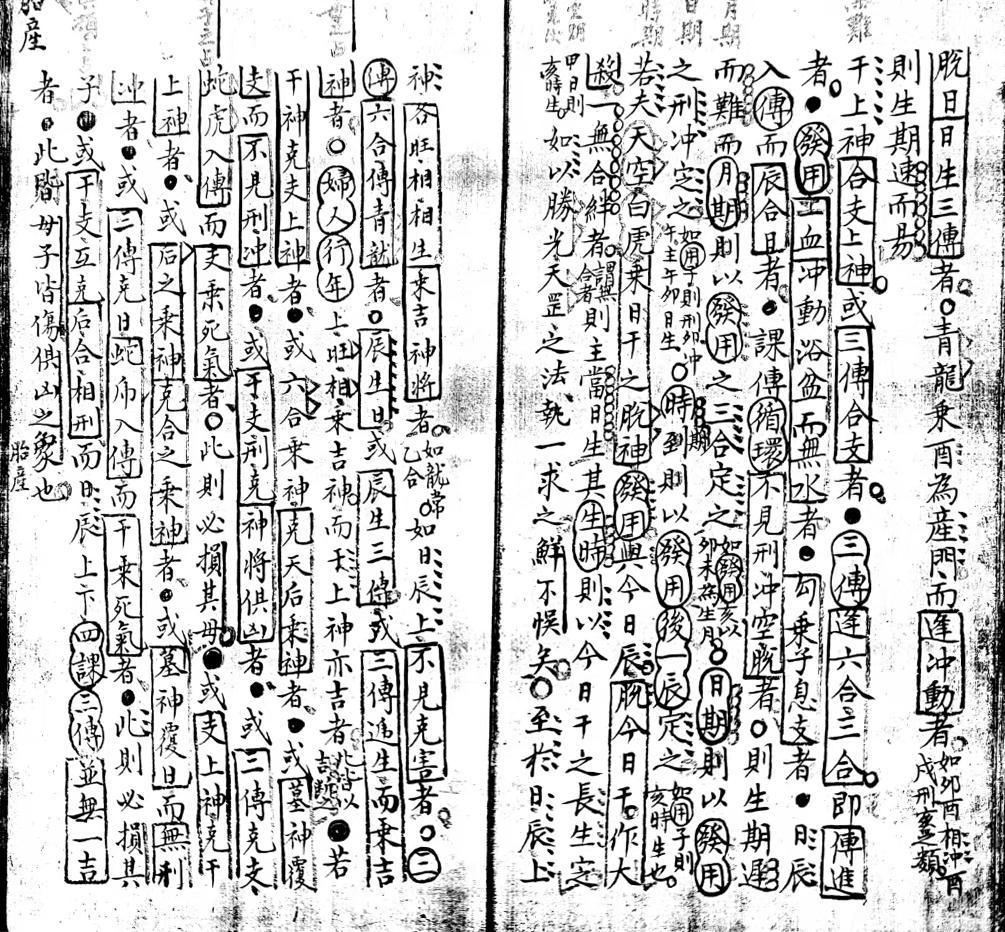 脫日日生三傳者青龍乘酉為產門而逢冲動者如卯酉相冲酉戌刑害之類
則生期速而易
干上神合支上神或三傳合支者三傳逢六合三合即傳進
者發用血冲動浴盆而無水者勾乘子息支者日辰
入傳而辰合日者課傳循環不見刑冲空脫者則生期遲
而難而月期則以發用之三合定之如發用亥以卯未為生月日期則以發用
之刑冲定之如用子則刑卯冲午主午卯日生時期到則以發用後一辰定之如用子則亥時生也
若夫天空白虎乘日干之脫神發用與今日辰脫今日干作大
殺一無合絆者謂無合者則主當日生其生時則以今日干之長生定
甲日則亥時生如以勝光天罡之法執一求之鮮不悞矣至於日辰上
神各旺相相生乘吉神將者如龍常乙合如日辰上不見克害者三
傳六合傳青龍者辰生日或辰生三傳或三傳遞生而乘吉
神者婦人行年上旺相乘吉神而天上神亦吉者此皆以吉斷若
干神克夫上神者或六合乘神克天后乘神者或墓神覆
支而不見刑冲者或干支刑克神將俱凶者或三傳克支
蛇虎入傳而支乘死氣者此則必損其母或支上神克干
上神者或后之乘神克合之乘神者或墓神覆日而無刑
冲者或三傳克日蛇虎入傳而干乘死氣者此則必損其
子或干支互克后合相刑而日辰上下四課三傳並無一吉
者此器母子皆傷俱凶之象也
胎產
胎產